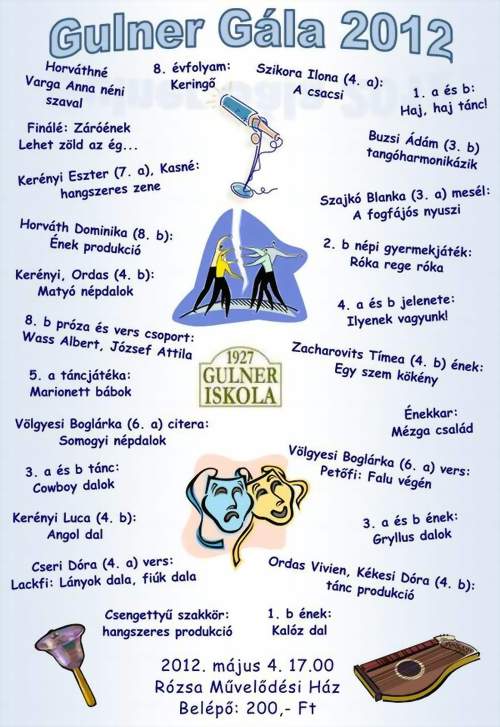 Gulner Gála 2012
Horváthné
Varga Anna néni
szaval
8. évfolyam:
Keringő
Szikora Ilona (4. a):
A csacsi
1. a és b:
Haj, haj tánc!
Finálé: Záróének
Lehet zöld az ég...
Buzsi Ádám (3. b)
tangóharmonikázik
Kerényi Eszter (7. a), Kasné:
hangszeres zene
Szajkó Blanka (3. a) mesél:
A fogfájós nyuszi
Horváth Dominika (8. b):
Ének produkció
2. b népi gyermekjáték:
Róka rege róka
Kerényi, Ordas (4. b):
Matyó népdalok
4. a és b jelenete:
Ilyenek vagyunk!
8. b próza és vers csoport:
Wass Albert, József Attila
1927
GULNER
ISKOLA
Zacharovits Tímea (4. b) ének:
Egy szem kökény
5. a táncjátéka:
Marionett bábok
Énekkar:
Mézga család
Völgyesi Boglárka (6. a) citera:
Somogyi népdalok
Völgyesi Boglárka (6. a) vers:
Petőfi: Falu végén
3. a és b tánc:
Cowboy dalok
Kerényi Luca (4. b):
Angol dal
3. a és b ének:
Gryllus dalok
Cseri Dóra (4. a) vers:
Lackfi: Lányok dala, fiúk dala
Ordas Vivien, Kékesi Dóra (4. b):
tánc produkció
Csengettyű szakkör:
hangszeres produkció
1. b ének:
Kalóz dal
2012. május 4. 17.00
Rózsa Művelődési Ház
Belépő: 200,- Ft